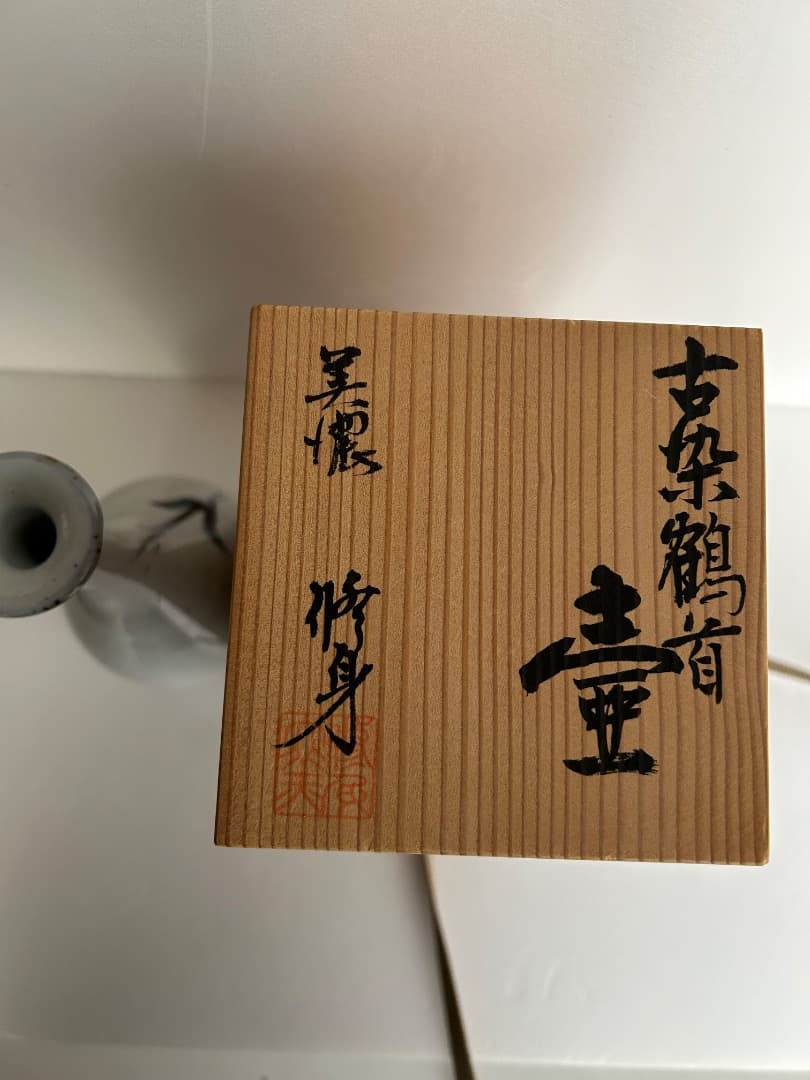 古染鶴首
壷
美濃
修身